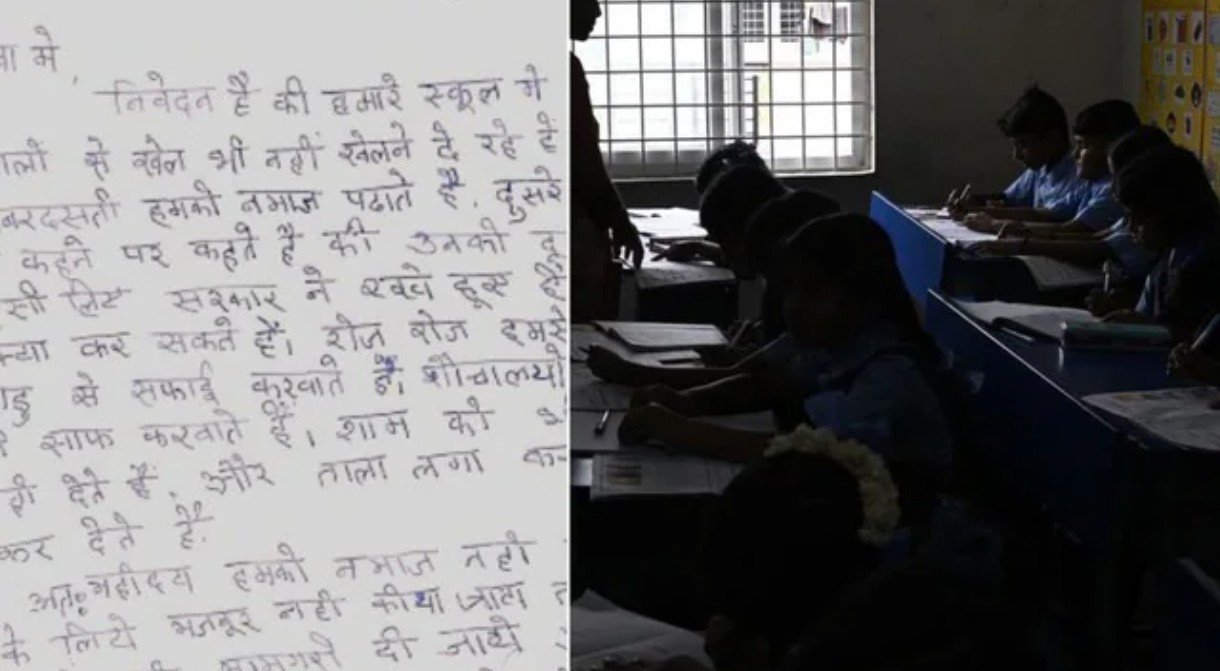 मे,
निवेदन है की हमारे स्कूल मे
से खेल भी नहीं खेलने दे रहे हैं
हमको नमाज पढाते है. दुसरे
कहने पर कहते है की उनको
लिए सरकार ने रखे हुए है
क्या कर सकते हैं। रोज रोज हमसे
से सफाई करवाते है। शौचालयो
साफ करवाते है। शाम को
देते है. और ताला लगा
कर देते है.
अतः महोदय हमको नमाज नही
के लिये मजबूर नही कीया जाता
दी जाये